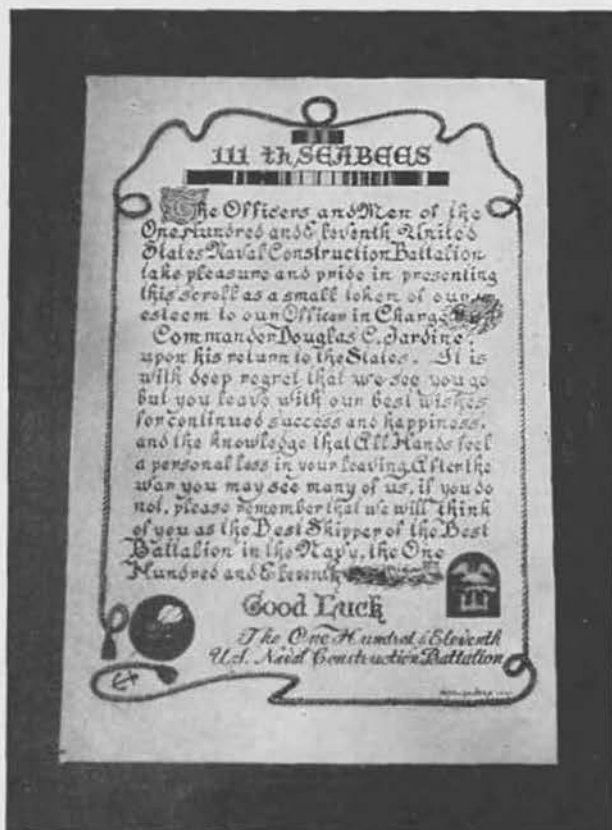 111 th SEABEES
The Officers and Men of the
One Hundred and Eleventh United
States Naval Construction Battalion
take pleasure and pride in presenting
this scroll as a small token of our
esteem to our Officer in Charge
Commander Douglas C. Jardine,
upon his return to the States. It is
with deep regret that we see you go
but you leave with our best wishes
for continued success and happiness.
and the knowledge that All Hands feel
a personal loss in your leaving. After the
war you may see many of us, if you do
not, please remember that we will think
of you as the Best Skipper of the Best
Battalion in the Navy, the One
Hundred and Eleventh
Good Luck
The One Hundred & Eleventh
U.S. Naval Construction Battalion